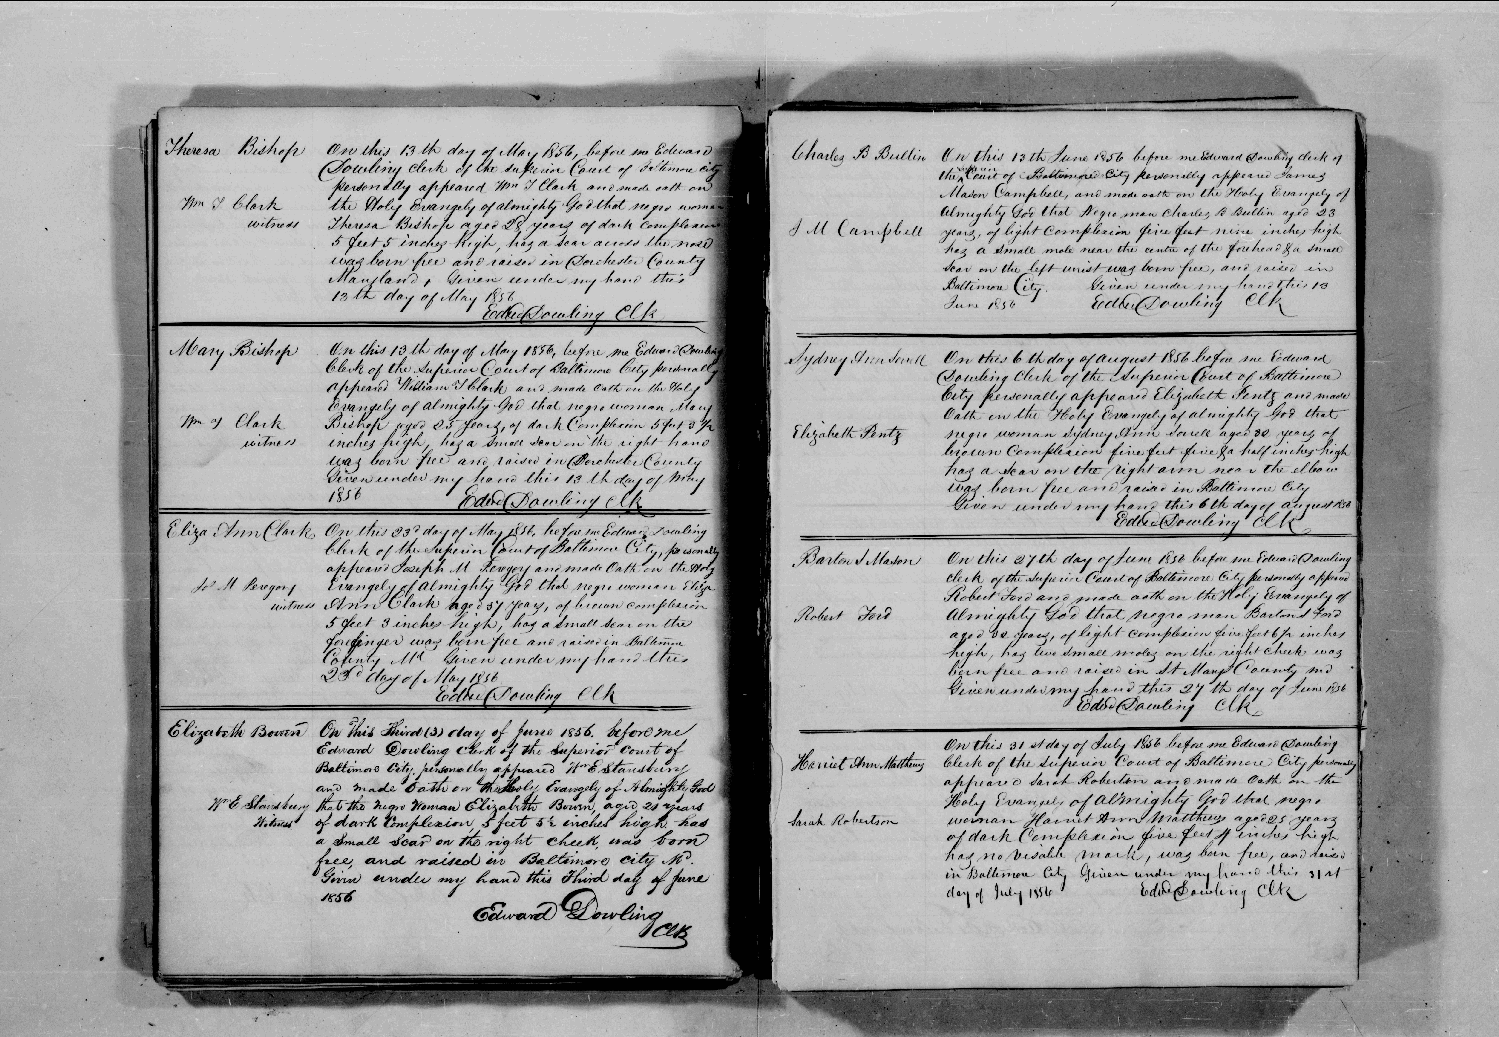 Theresa Bishop
Wm T Clark
witness
On this 13th day of May 1856, before me Edward
Dowling clerk of the Superior Court of Baltimore City
personally appeared Wm T Clark and made oath on
the Holy Evangely of almighty God that negro woman
Theresa Bishop aged 28 years of dark complexion
5 feet 5 inches high, has a scar across the nose
was born free and raised in Dorchester County
Maryland, Given under my hand this
13th day of May 1856
Edwd Dowling Clk
Mary Bishop
Wm T Clark
witness
On this 13th day of May 1856, before me Edward Dowling
Clerk of the Superior Court of Baltimore City personally
appeared William T Clark and made oath on the Holy
Evangely of almighty God that negro woman Mary
Bishop aged 25 years, of dark Complexion 5 feet 3 1/2
inches high, has a small scar on the right hand
was born free and raised in Dorchester County
Given under my hand this 13th day of May
1856
Edwd Dowling Clk
Eliza Ann Clark
Jos M
witness
On this 23d day of May 1856, before me Edward Dowling
Clerk of the Superior Court of Baltimore City, personally
appeared Joseph M and made Oath on the Holy
Evangely of almighty God that negro woman Eliza
Ann Clark aged 37 years, of brown complexion
5 feet 3 inches high, has a small scar on the
forefinger was born free and raised in Baltimore
County Md Given under my hand this
23d day of May 1856
Edwd Dowling Clk
Elizabeth Bowen
Wm E Stansbury
Witness
On this Third (3) day of June 1856. before me
Edward Dowling Clerk of the Superior Court of
Baltimore City, personally appeared Wm E Stansbury
and made Oath on the Holy Evangely of Almighty God
that the negro Woman Elizabeth Bowen, aged 21 years
of dark Complexion, 5 feet 5 1/2 inches high - has
a small scar on the right cheek, was born
free, and raised in Baltimore City Md.
Given under my hand this Third day of June
1856
Edward Dowling
Clk
Charles B Bultin
J M Campbell
On this 13th June 1856 before me Edward Dowling clerk of
the Superior Court of Baltimore City personally appeared James
Mason Campbell, and made oath on the Holy Evangely of
Almighty God that Negro man Charles B Bultin aged 23
years, of light Complexion five feet nine inches high
has a small mole near the centre of the forehead & a small
scar on the left wrist was born free, and raised in
Baltimore City. Given under my hand this 13
June 1856 Edwd Dowling Clk
Sydney Ann Sorell
Elizabeth Pentz
On this 6th day of august 1856 before me Edward
Dowling Clerk of the Superior Court of Baltimore
City personally appeared Elizabeth Pentz and made
Oath on the Holy Evangely of almighty God that
negro woman Sydney Ann Sorell aged 32 years of
brown Complexion five feet five & a half inches high
has a scar on the right arm near the elbow
was born free and raised in Baltimore City
Given under my hand this 6th day of august 1856
Edwd Dowling Clk
Barton S Mason
Robert Ford
On this 27th day of June 1856 before me Edward Dowling
clerk of the Superior Court of Baltimore City personally appeared
Robert Ford and made oath on the Holy Evangely of
Almighty God that negro man Barton S Ford
aged 32 years, of light complexion five feet 6 1/2 inches
high, has two small moles on the right cheek was
born free and raised in St Marys County md
Given under my hand this 27th day of June 1856
Edwd Dowling Clk
Harriet Ann Matthews
Sarah Robertson
On this 31st day of July 1856 before me Edward Dowling
Clerk of the Superior Court of Baltimore City personally
appeared Sarah Robertson and made Oath on the
Holy Evangely of almighty God that negro
woman Harriet Ann Matthews aged 25 years
of dark Complexion five feet 4 inches high
has no visable mark, was born free, and raised
in Baltimore City Given under my hand this 31st
day of July 1856 Edwd Dowling Clk